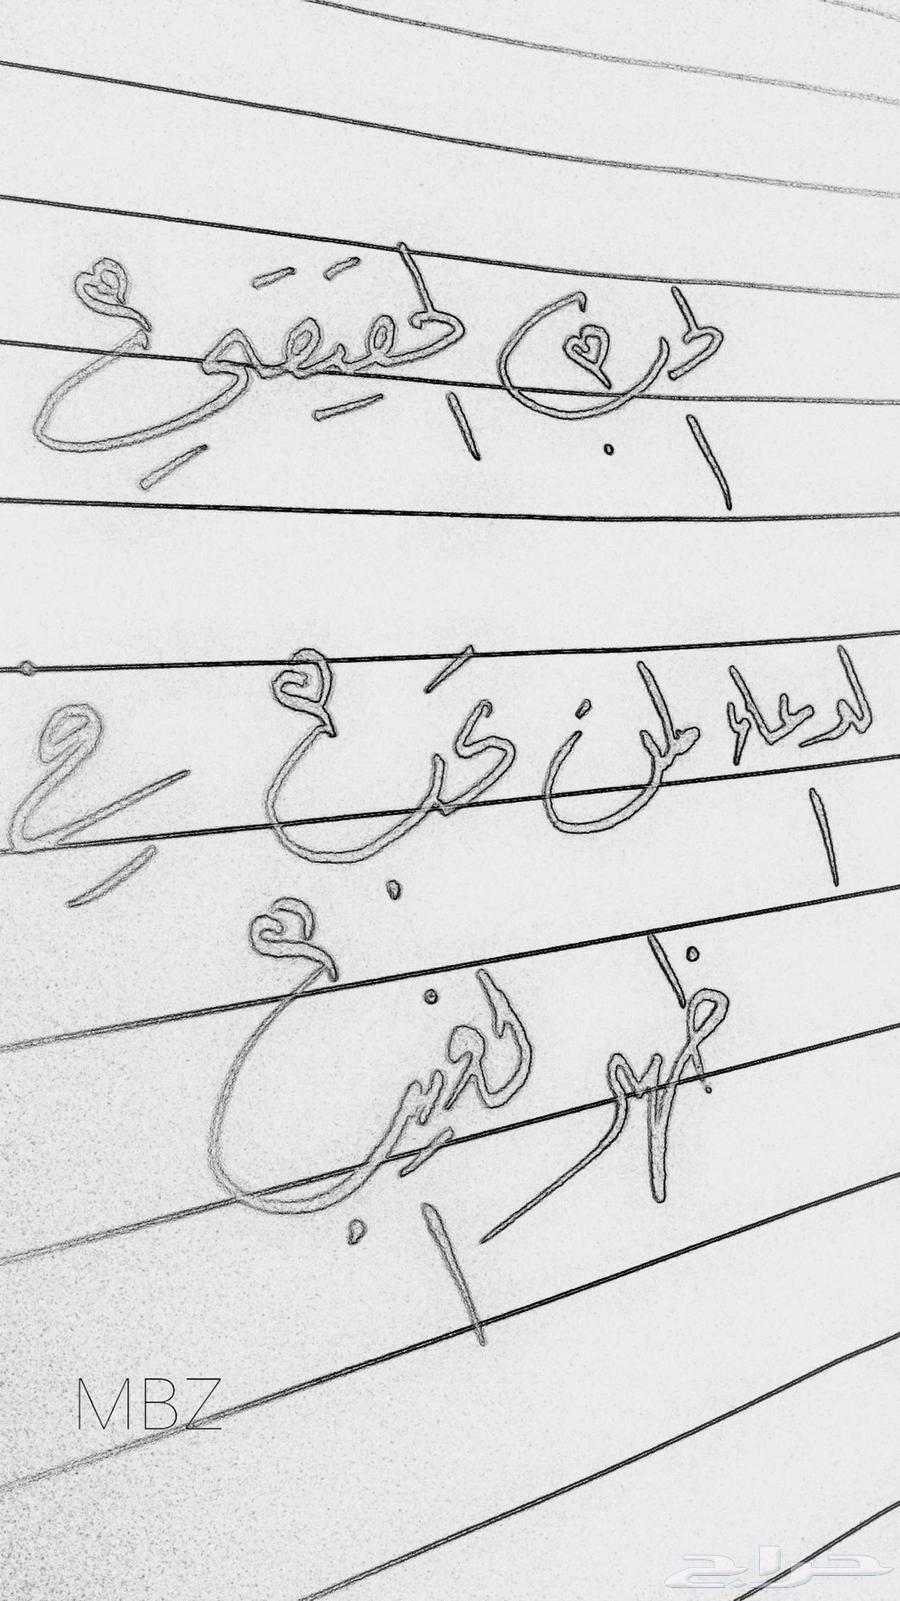 الحب الحقيقي
الدعاء لمن تحب في
ظهر الغيب
MBZ
حراج